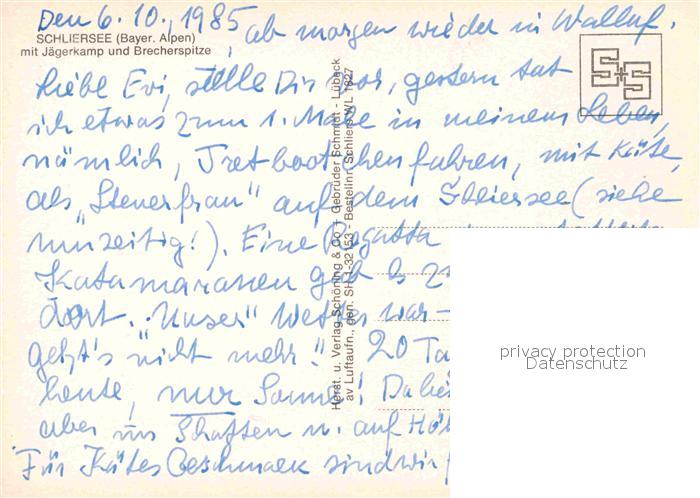 Den 6.10., 1985, ab morgen wieder in Walluf.
SCHLIERSEE (Bayer. Alpen)
mit Jägerkamp und Brecherspitze
S+S
Liebe Evi, stelle Dir vor, gestern tat
ich etwas zum 1. Male in meinem Leben,
nämlich, Tretbootchenfahren, mit Käte,
als "Steuerfrau" auf dem Schliersee (siehe
). Eine Regatta
Katamaranen gab es
dort. "Unser" Wetter, war -
geht's nicht mehr!! 20 Ta
heute, nur Sonne! Dabei
aber im Schatten u. auf Höh
Für Kätes Geschmack sind wir
Herst. u. Verlag Schöning & Co + Gebrüder Schmidt - Lübeck
av Luftaufn., gen. SH 1-32153 Bestellnr. Schliers WL 1627
privacy protection
Datenschutz